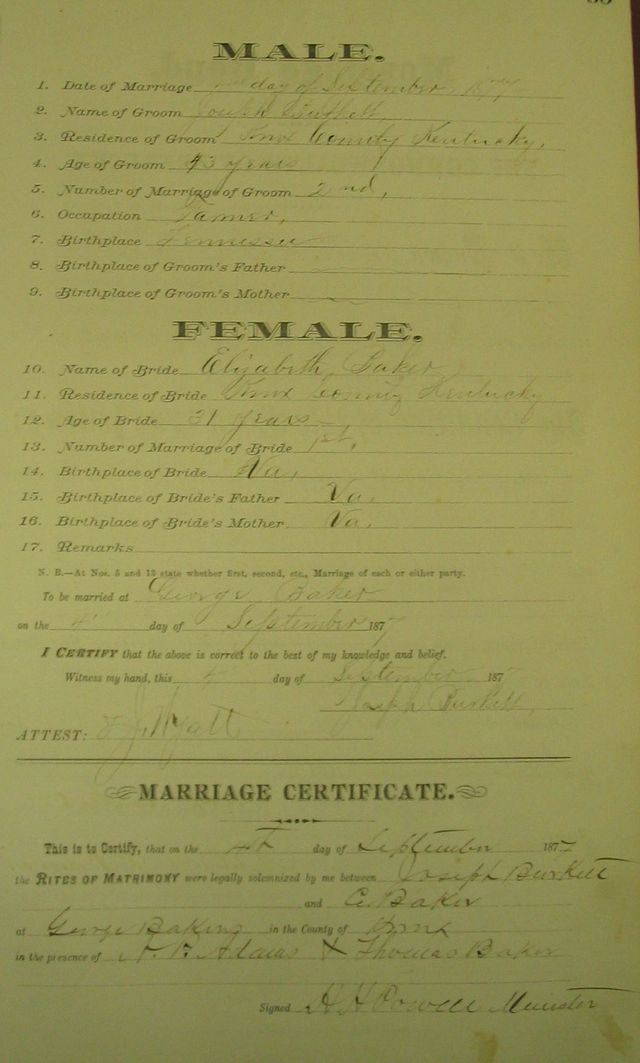 MALE.
1. Date of Marriage day of September, 1877
2. Name of Groom Joseph Burkett,
3. Residence of Groom Knox County Kentucky,
4. Age of Groom 43 years
5. Number of Marriage of Groom 2nd,
6. Occupation Farmer,
7. Birthplace Tennessee
8. Birthplace of Groom's Father
9. Birthplace of Groom's Mother
FEMALE.
10. Name of Bride Elizabeth Baker
11. Residence of Bride Knox County Kentucky
12. Age of Bride 31 years
13. Number of Marriage of Bride 1st,
14. Birthplace of Bride Va,
15. Birthplace of Bride's Father Va,
16. Birthplace of Bride's Mother Va.
17. Remarks
N. B.—At Nos. 5 and 13 state whether first, second, etc., Marriage of each or either party.
To be married at George Baker
on the 4 day of September 1877
I CERTIFY that the above is correct to the best of my knowledge and belief.
Witness my hand, this 4 day of September 187
Joseph Burkett,
ATTEST: J. Wyatt
MARRIAGE CERTIFICATE.
This is to Certify, that on the 4th day of September 1877
the RITES OF MATRIMONY were legally solemnized by me between Joseph Burkett
and E. Baker
at George Bakers in the County of Knox
in the presence of Adams & Thomas Baker
Signed H H Powell Minister